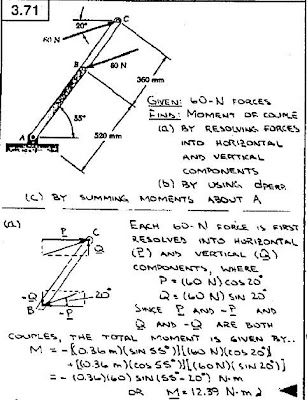 3.71
20°
C
60 N
B
60 N
360 mm
A
55°
520 mm
GIVEN: 60-N FORCES
FIND: MOMENT OF COUPLE
(a) BY RESOLVING FORCES
INTO HORIZONTAL
AND VERTICAL
COMPONENTS
(b) BY USING dPERP.
(c) BY SUMMING MOMENTS ABOUT A
(a)
EACH 60-N FORCE IS FIRST
RESOLVED INTO HORIZONTAL
(P) AND VERTICAL (Q)
COMPONENTS, WHERE
P = (60 N) COS 20°
Q = (60 N) SIN 20°
SINCE P AND -P AND
Q AND -Q ARE BOTH
P
C
Q
-Q
20°
B
-P
COUPLES, THE TOTAL MOMENT IS GIVEN BY..
M = -[(0.36 m)(SIN 55°)][(60 N)(COS 20°)]
+[(0.36 m)(COS 55°)][(60 N)(SIN 20°)]
= -(0.36)(60) SIN(55°-20°) N·m
OR M = 12.39 N·m